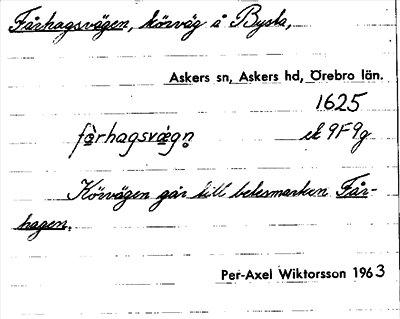 Fårhagsvägen, körväg å Bysta,
Askers sn, Askers hd, Örebro län.
1625
få̀rhagsvä̀gn̥ ek 9F9g
Körvägen går till betesmarken Får-
hagen.
Per-Axel Wiktorsson 1963